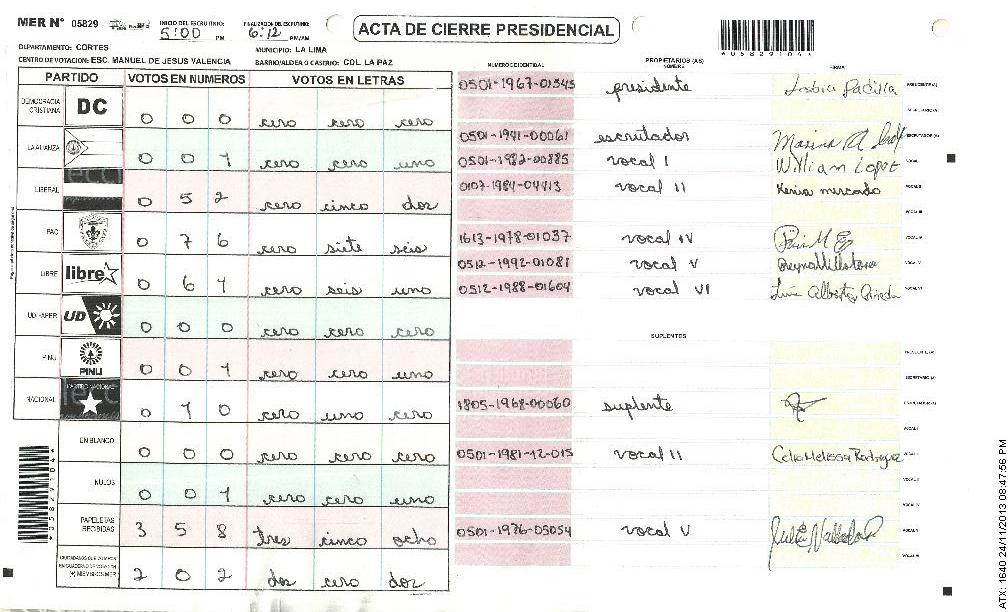 MER N° 05829
INICIO DEL ESCRUTINIO: 5:00 PM
FINALIZACION DEL ESCRUTINIO: 6:12 PM/AM
ACTA DE CIERRE PRESIDENCIAL
*05829104*
DEPARTAMENTO: CORTES
MUNICIPIO: LA LIMA
CENTRO DE VOTACION: ESC. MANUEL DE JESUS VALENCIA
BARRIO/ALDEA O CASERIO: COL. LA PAZ
PARTIDO VOTOS EN NUMEROS VOTOS EN LETRAS
DEMOCRACIA CRISTIANA DC 0 0 0 cero cero cero
LA ALIANZA 0 0 1 cero cero uno
LIBERAL 0 5 2 cero cinco dos
PAC 0 7 6 cero siete seis
LIBRE libre 0 6 1 cero seis uno
UD FAPER UD 0 0 0 cero cero cero
PINU PINU 0 0 1 cero cero uno
NACIONAL PARTIDO NACIONAL 0 1 0 cero uno cero
EN BLANCO 0 0 0 cero cero cero
NULOS 0 0 1 cero cero uno
PAPELETAS RECIBIDAS 3 5 8 tres cinco ocho
CIUDADANOS QUE VOTARON EN CUADERNO DE VOTACION (+) MIEMBROS MER 2 0 2 dos cero dos
NUMERO IDENTIDAD PROPIETARIOS (AS) NOMBRE FIRMA
0501-1967-01345 presidente Lesbia Padilla PRESIDENTE (A)
SECRETARIO (A)
0501-1941-00061 escrutador Marina ESCRUTADOR (A)
0501-1982-00885 vocal I William Lopez VOCAL I
0107-1984-04413 vocal II Kenia mercado VOCAL II
VOCAL III
1613-1978-01037 vocal IV VOCAL IV
0512-1992-01081 vocal V VOCAL V
0512-1988-01604 vocal VI Luis Alberto Pineda VOCAL VI
SUPLENTES
PRESIDENTE (A)
SECRETARIO (A)
1805-1968-00060 suplente ESCRUTADOR (A)
VOCAL I
0501-1981-12-015 vocal II Celia Melissa Rodriguez
VOCAL III
VOCAL IV
0501-1976-05054 vocal V VOCAL V
VOCAL VI
*05829104*
ATX: 1640 24/11/2013 08:47:56 PM